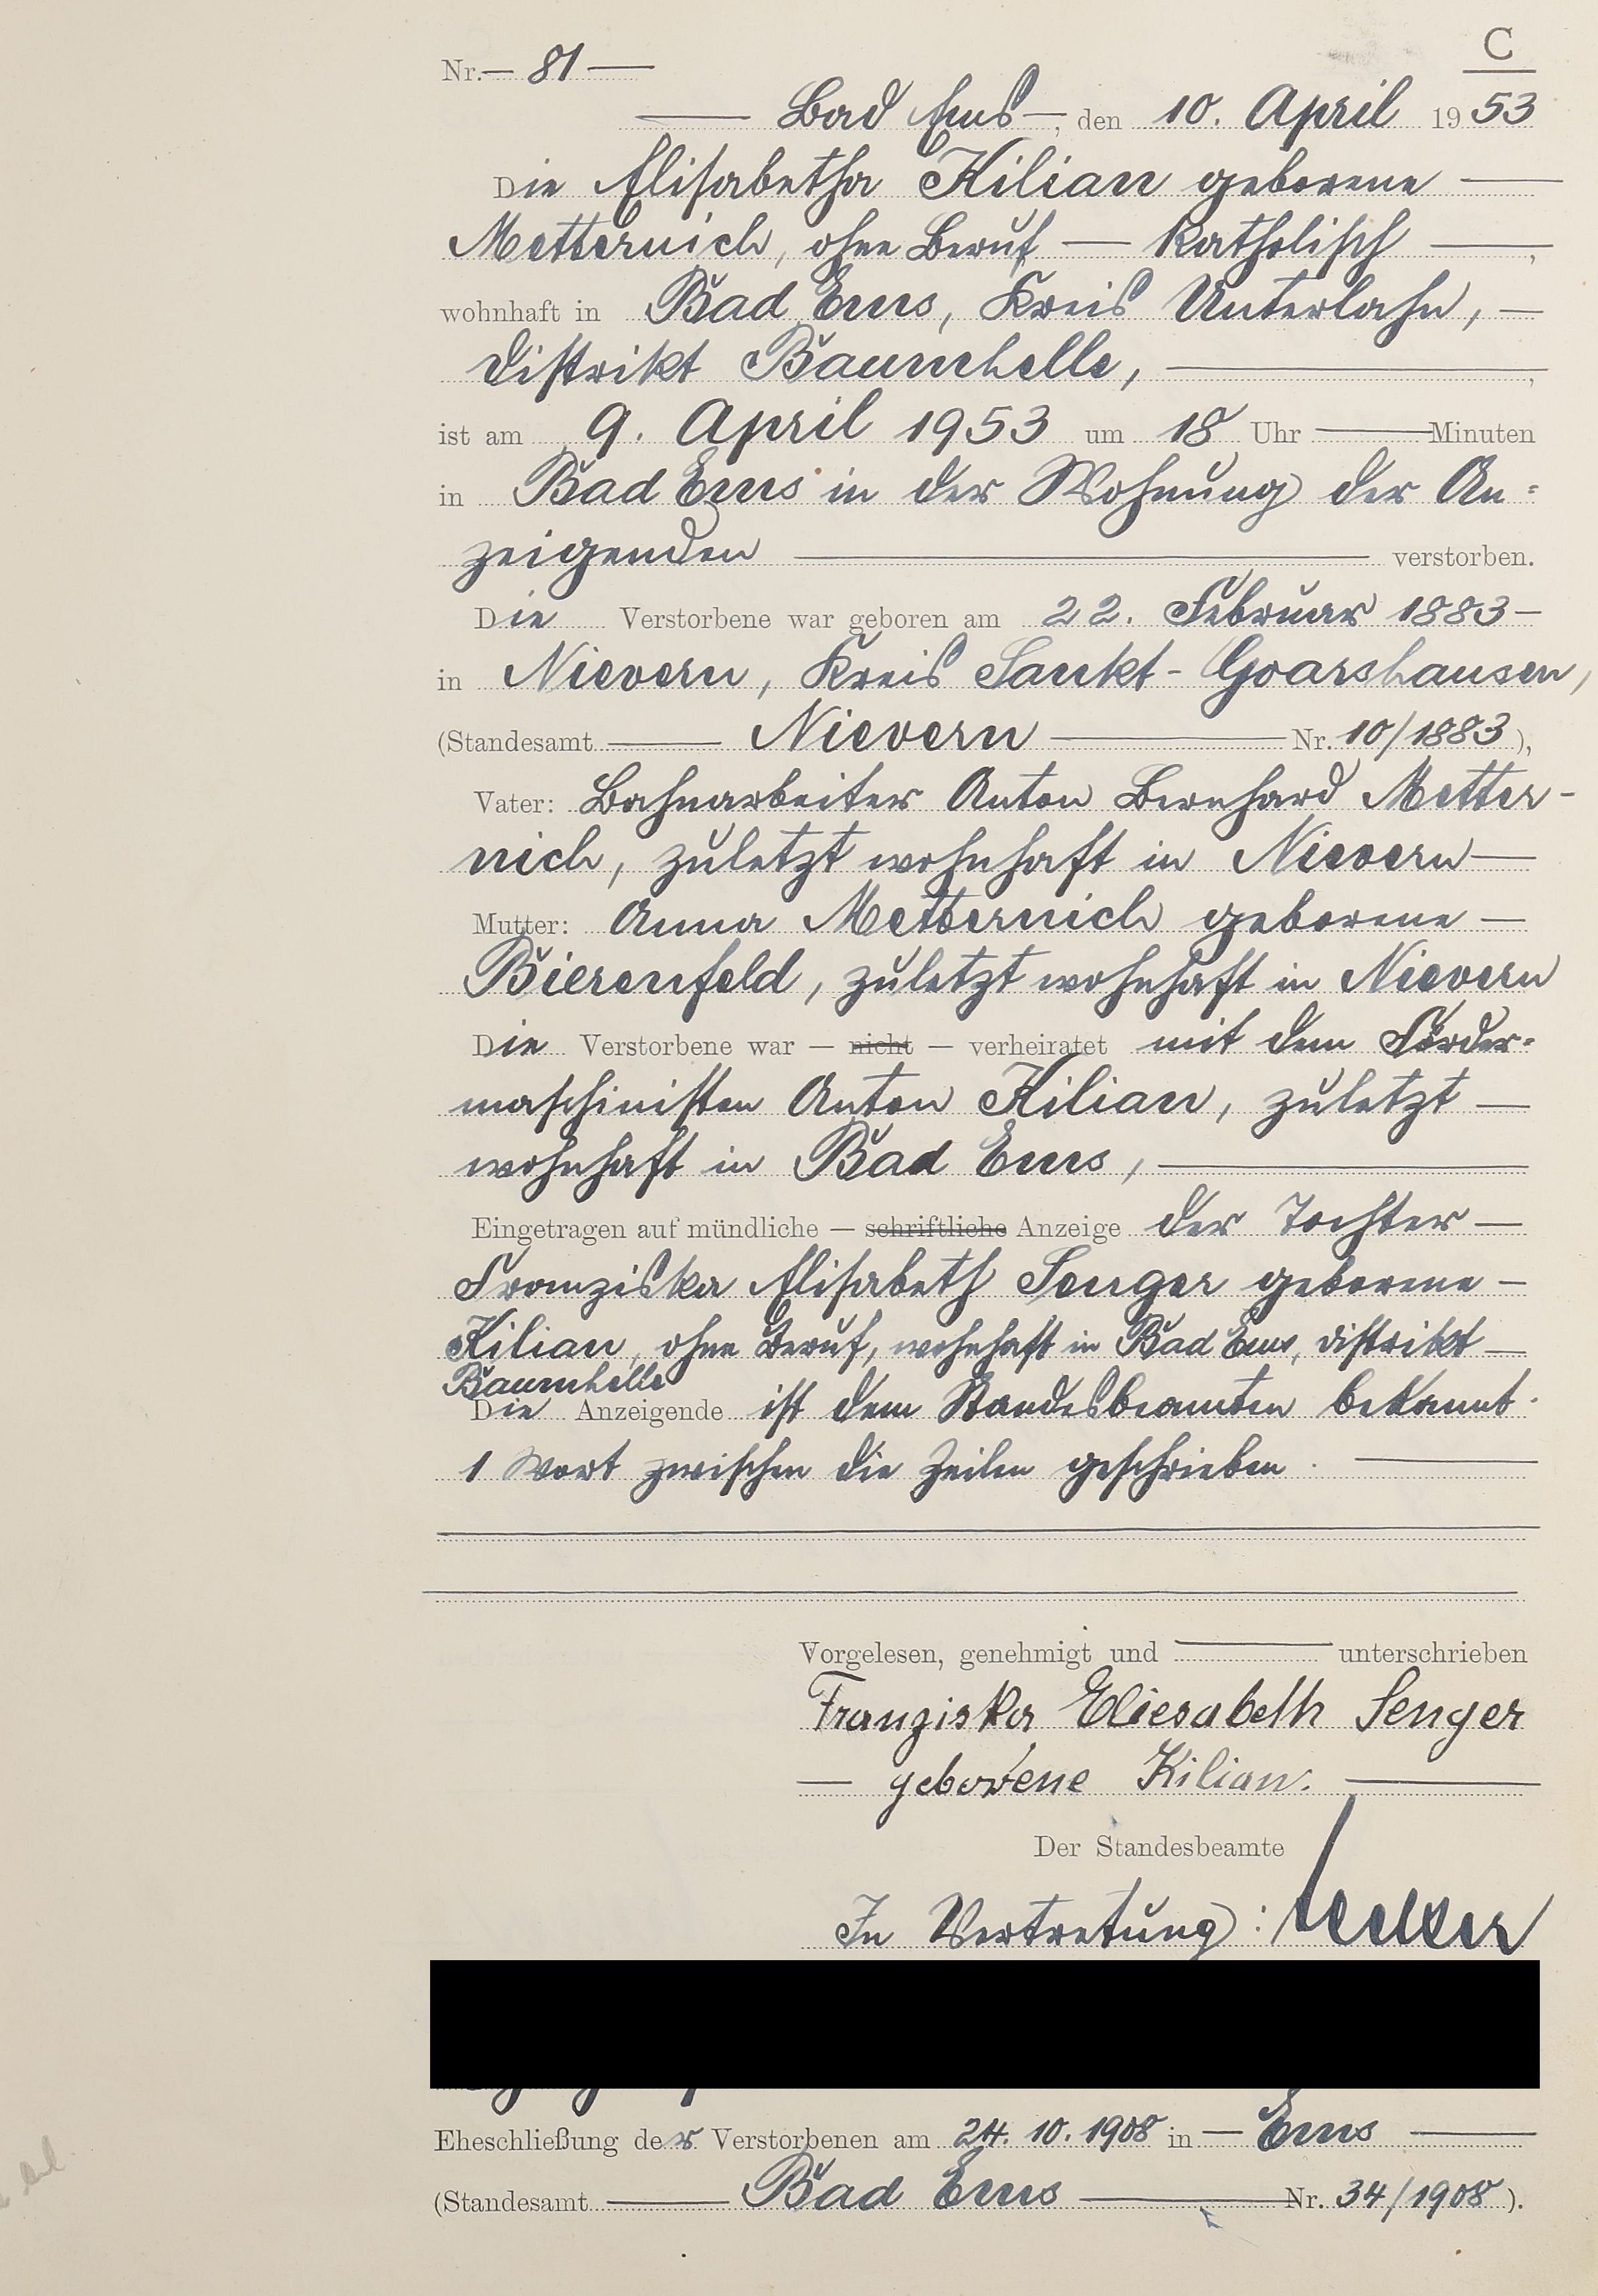 C
Nr. — 81 —
— Bad Ems —, den 10. April 1953
Die Elisabetha Kilian geborene —
Metternich, ohne Beruf — katholisch —,
wohnhaft in Bad Ems, Kreis Unterlahn, —
Distrikt Baumhelle, —,
ist am 9. April 1953 um 18 Uhr — Minuten
in Bad Ems in der Wohnung der An=
zeigenden — verstorben.
Die Verstorbene war geboren am 22. Februar 1883 —
in Nievern, Kreis Sankt-Goarshausen,
(Standesamt — Nievern — Nr. 10/1883),
Vater: Bahnarbeiter Anton Bernhard Metter-
nich, zuletzt wohnhaft in Nievern —
Mutter: Anna Metternich geborene —
Bierenfeld, zuletzt wohnhaft in Nievern
Die Verstorbene war — nicht — verheiratet mit dem Förder=
maschinisten Anton Kilian, zuletzt —
wohnhaft in Bad Ems, —
Eingetragen auf mündliche — schriftliche Anzeige der Tochter —
Franziska Elisabeth Senger geborene —
Kilian, ohne Beruf, wohnhaft in Bad Ems, Distrikt —
Baumhelle
Die Anzeigende ist dem Standesbeamten bekannt.
1 Wort zwischen die Zeilen geschrieben. —
Vorgelesen, genehmigt und — unterschrieben
Franziska Eliesabeth Senger
— geborene Kilian. —
Der Standesbeamte
In Vertretung:
Eheschließung der Verstorbenen am 24. 10. 1908 in — Ems —
(Standesamt — Bad Ems — Nr. 34/1908).